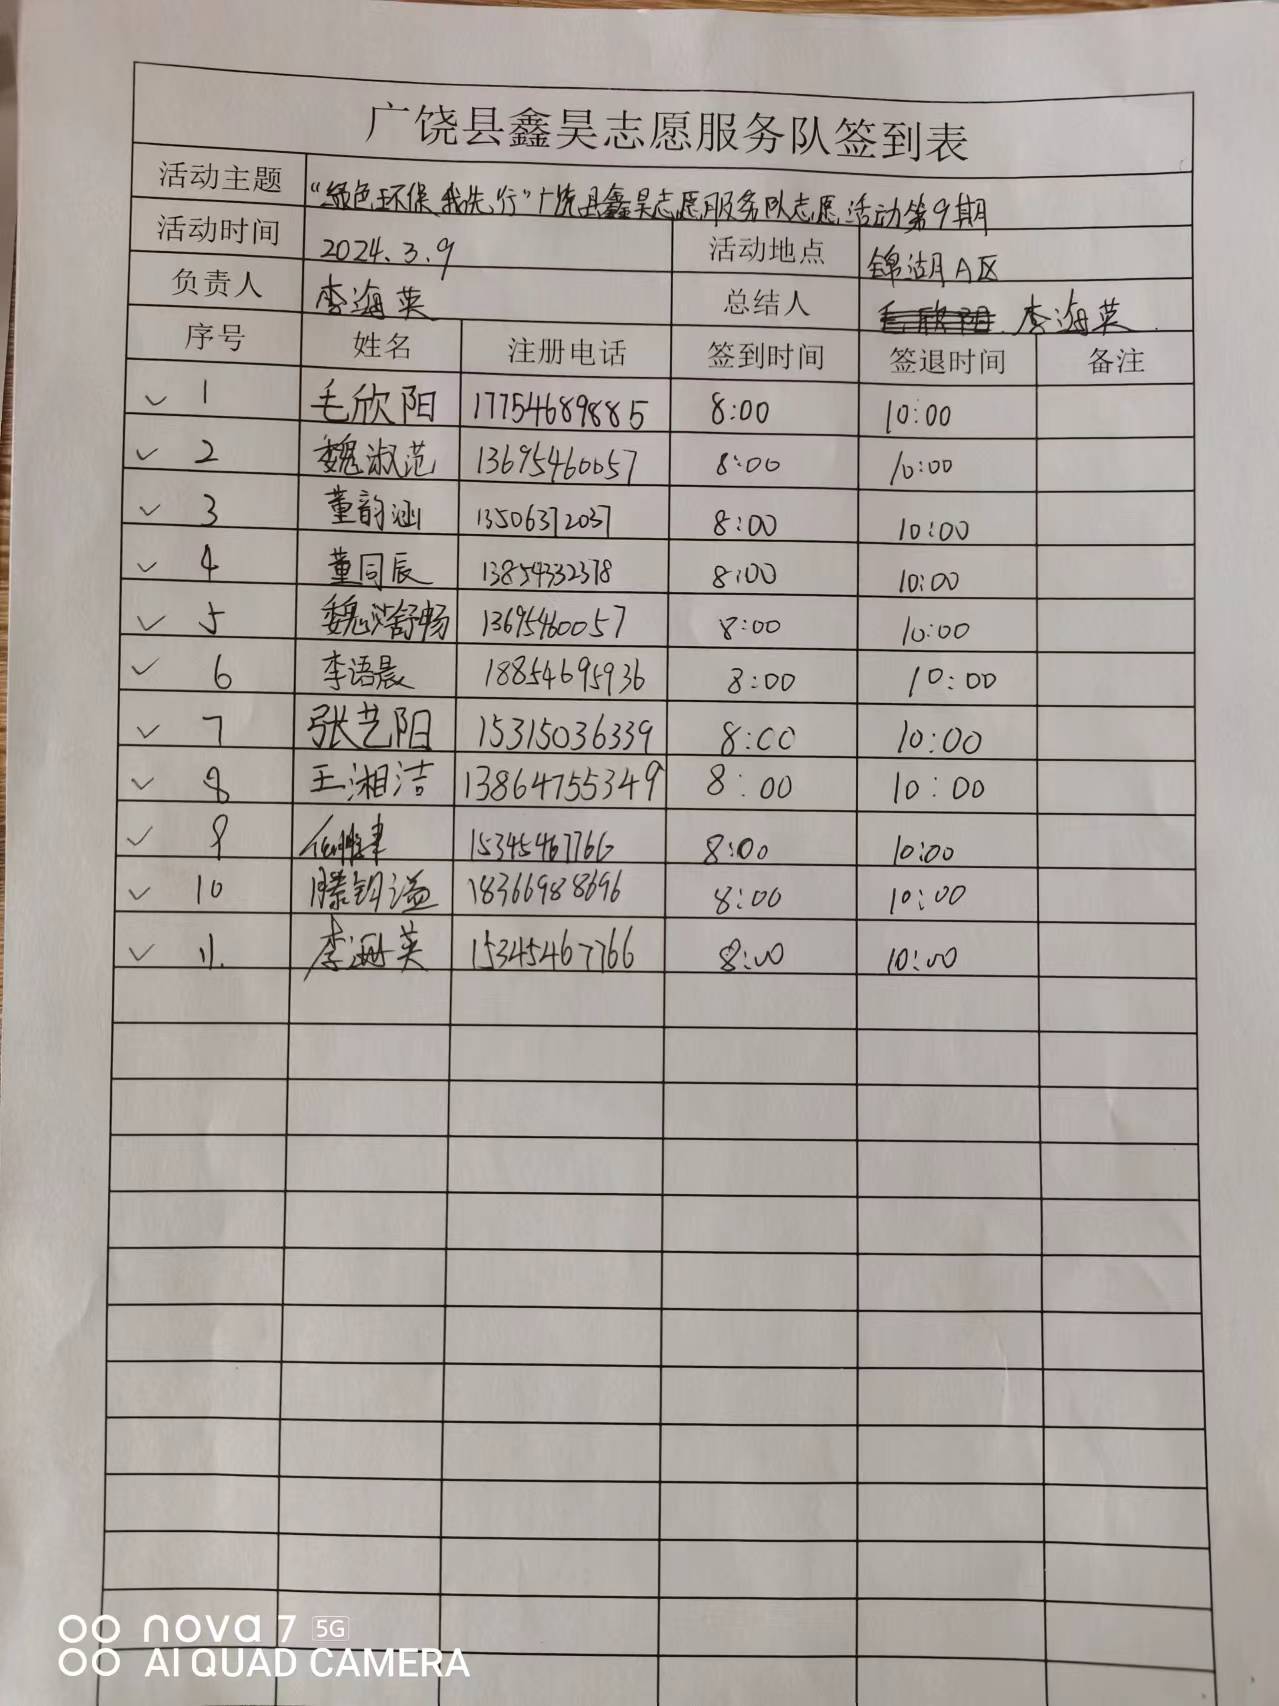 广饶县鑫昊志愿服务队签到表
活动主题 “绿色环保,我先行”广饶县鑫昊志愿服务队志愿活动第9期
活动时间 2024.3.9 活动地点 锦湖A区
负责人 李海英 总结人 李海英
序号 姓名 注册电话 签到时间 签退时间 备注
✓ 1 毛欣阳 17754689885 8:00 10:00
✓ 2 魏淑范 13695460057 8:00 10:00
✓ 3 董韵涵 13506372037 8:00 10:00
✓ 4 董同辰 13854332378 8:00 10:00
✓ 5 魏舒畅 13695460057 8:00 10:00
✓ 6 李语晨 18854695936 8:00 10:00
✓ 7 张艺阳 15315036339 8:00 10:00
✓ 8 王湘洁 13864755349 8:00 10:00
✓ 9 15345467766 8:00 10:00
✓ 10 18366988696 8:00 10:00
✓ 11. 李海英 15345467766 8:00 10:00
nova 7 5G
AI QUAD CAMERA